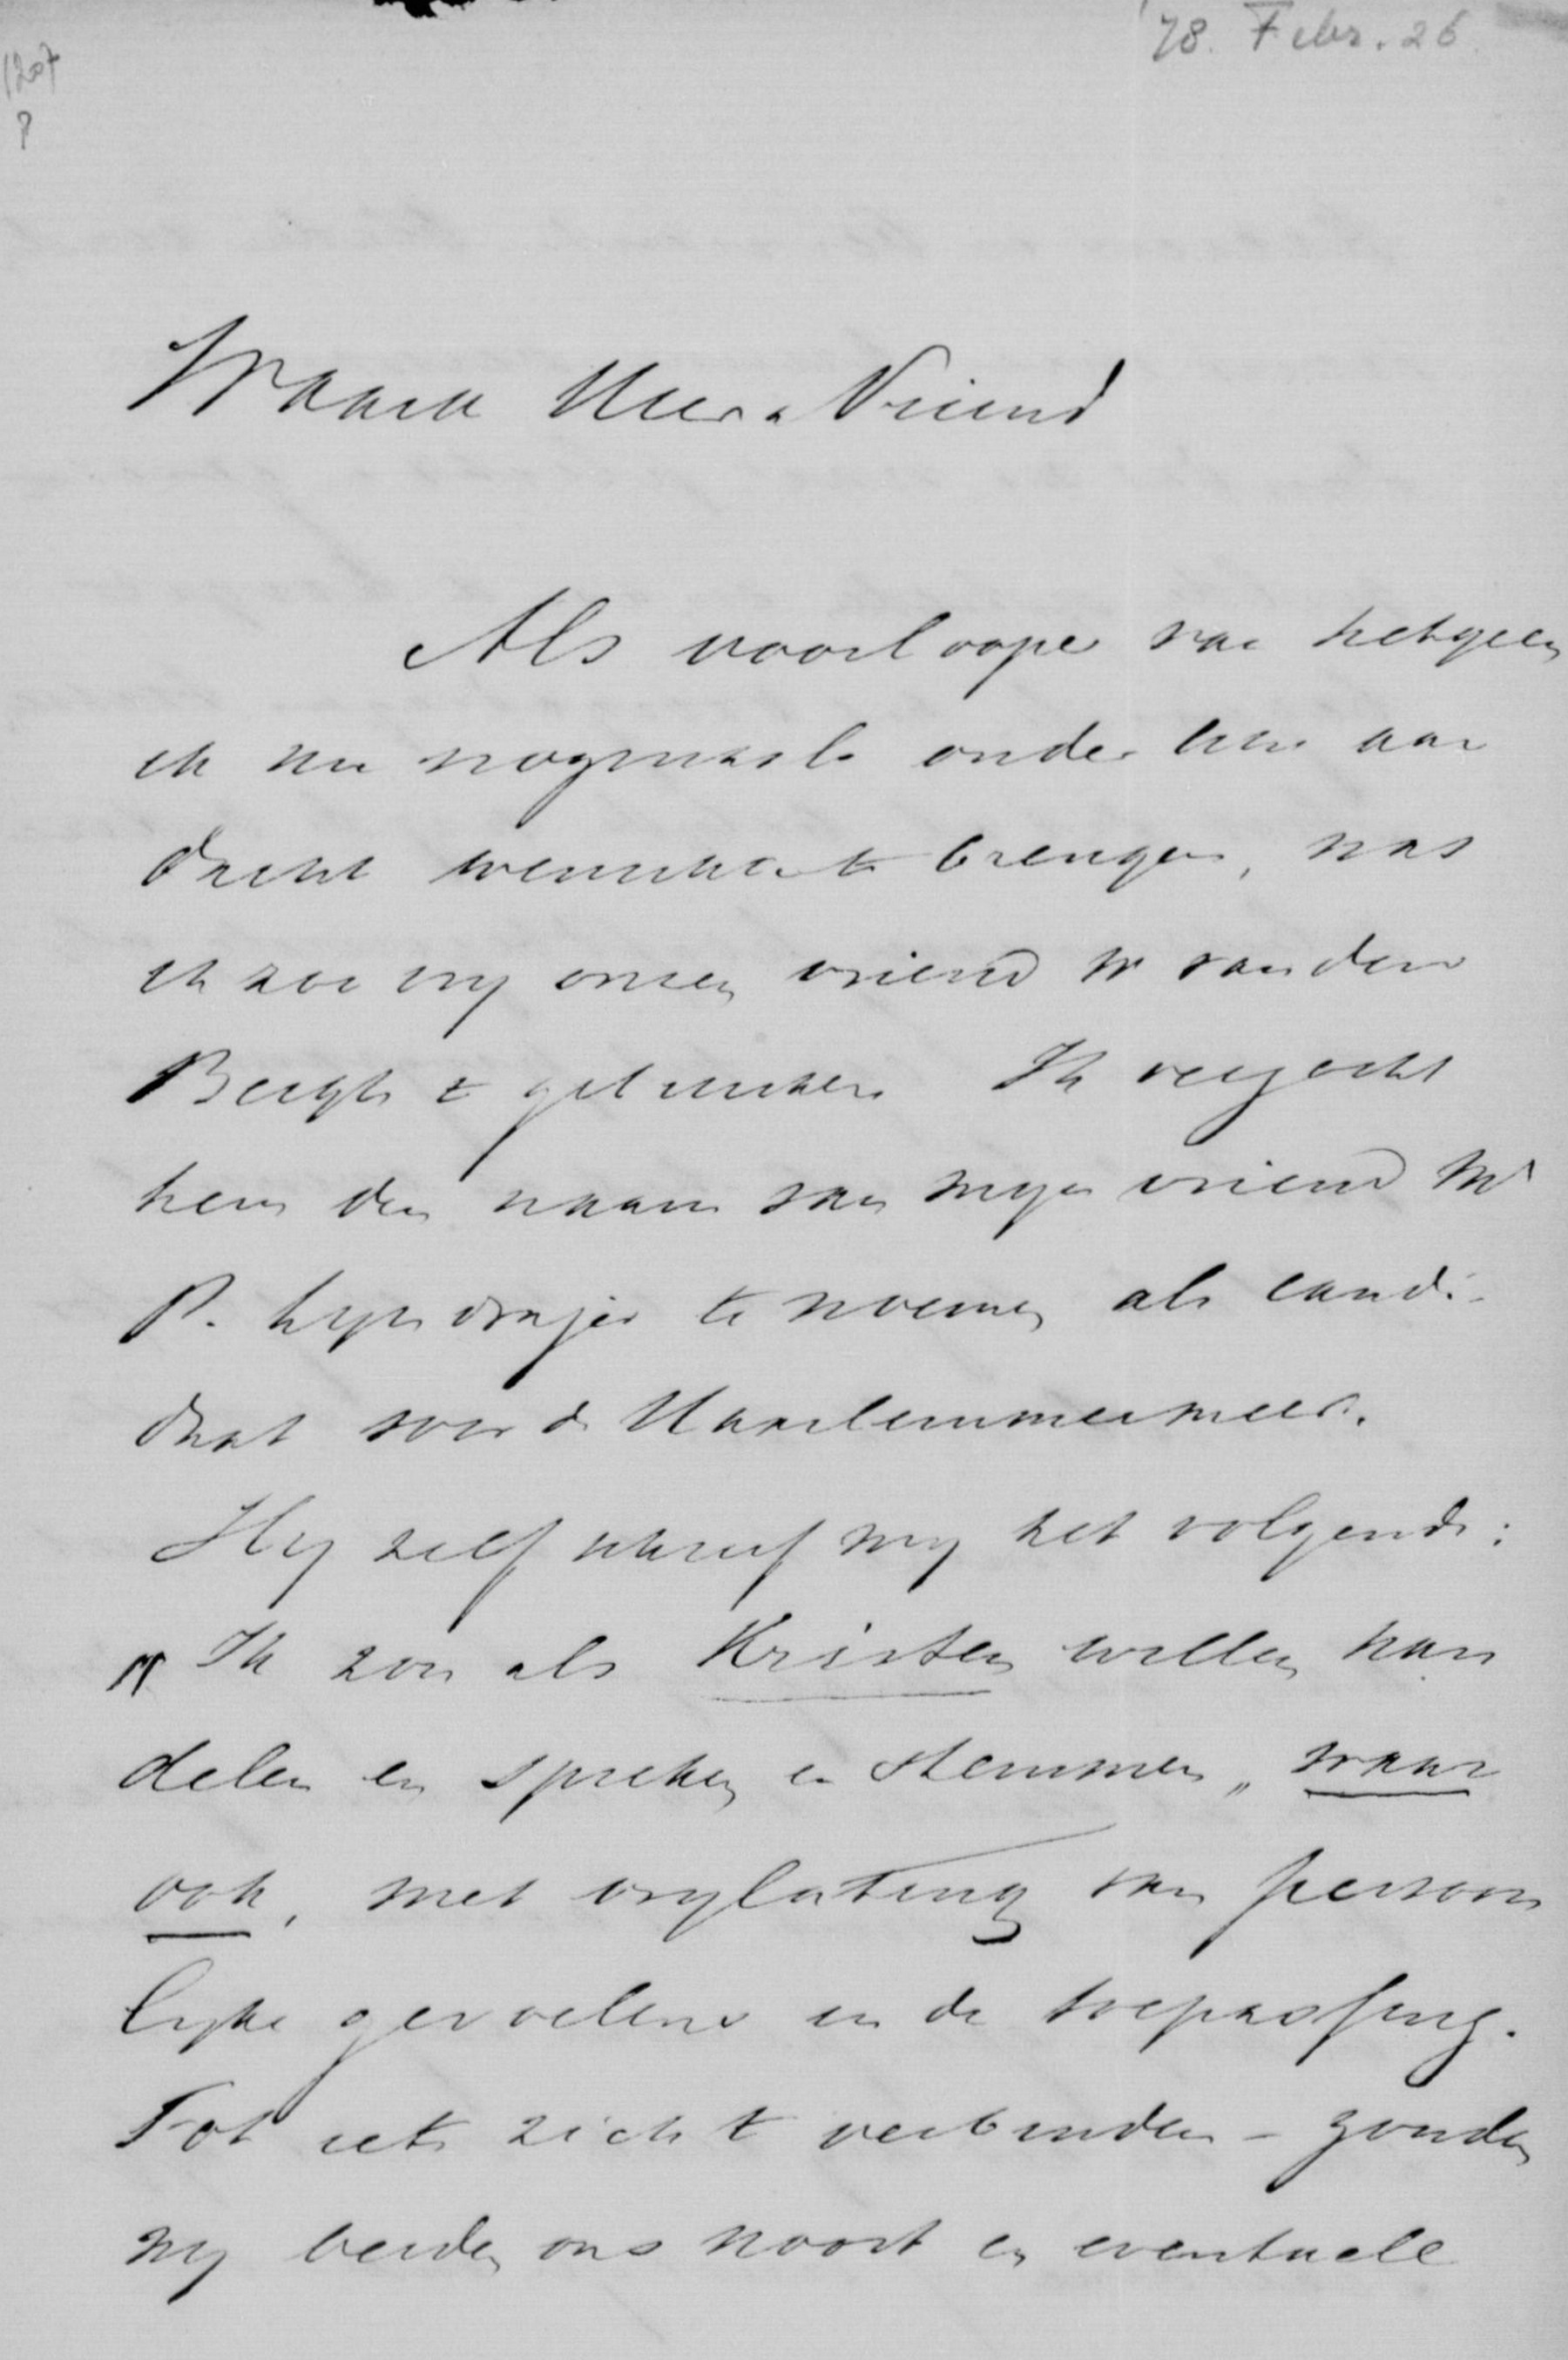 '78. Febr. 26.
1207
?
Waarde Heer & Vriend
Als voorlooper van hetgeen
ik nu nogmaals onder uw aan
dacht wenschte te brengen, was
ik zoo vrij onzen vriend Mr van den
Bergh te gebruiken. Ik verzocht
hem den naam van mijn vriend Mr
P. Lyndrajer te noemen als candi-
daat voor de Haarlemmermeer.
Hij zelf schreef mij het volgende:
" Ik zou als Kristen willen han
delen en spreken en stemmen „ waar
ook, met vrijlating van persoon
lijke gevoelens in de toepassing.
Tot iets zich te verbinden – zouden
wij beiden ons nooit en eventuele